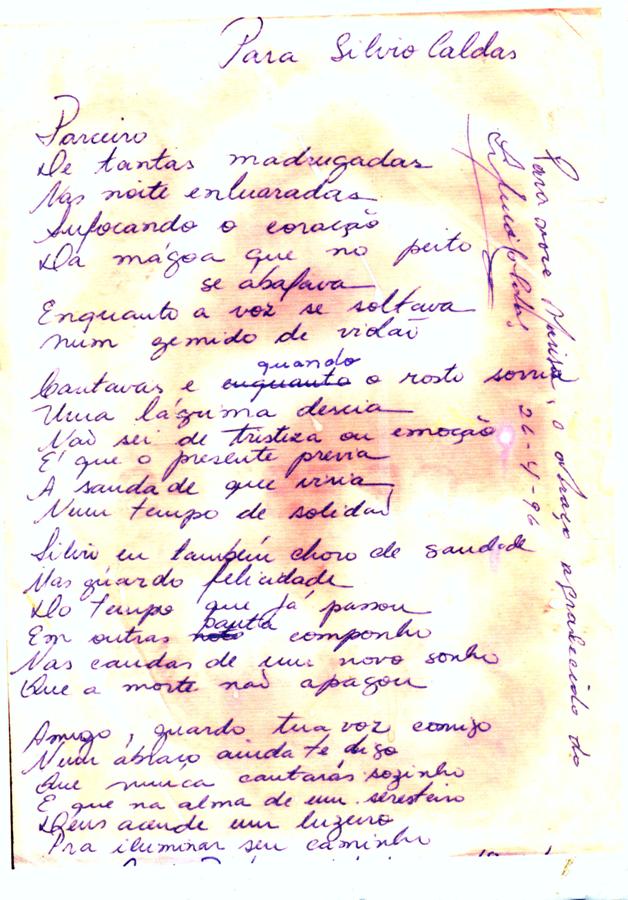 Para Silvio Caldas
Parceiro
De tantas madrugadas
Nas noite enluaradas
Sufocando o coração
Da mágoa que no peito
se abafava
Enquanto a voz se soltava
Num gemido de violão
quando
Cantavas e enquanto o rosto sorria
Uma lágrima descia
Não sei de tristeza ou emoção
É que o presente previa
A saudade que viria
Num tempo de solidão
Silvio eu também choro de saudade
Mas guardo felicidade
Do tempo que já passou
pauta
Em outras componho
Nas caudas de um novo sonho
Que a morte não apagou
Amigo, guardo tua voz comigo
Num abraço ainda te digo
Que nunca cantarás sozinho
E que na alma de um seresteiro
Deus acende um luzeiro
Pra iluminar seu caminho
Para você Marisa, o abraço agradecido do
26-4-96